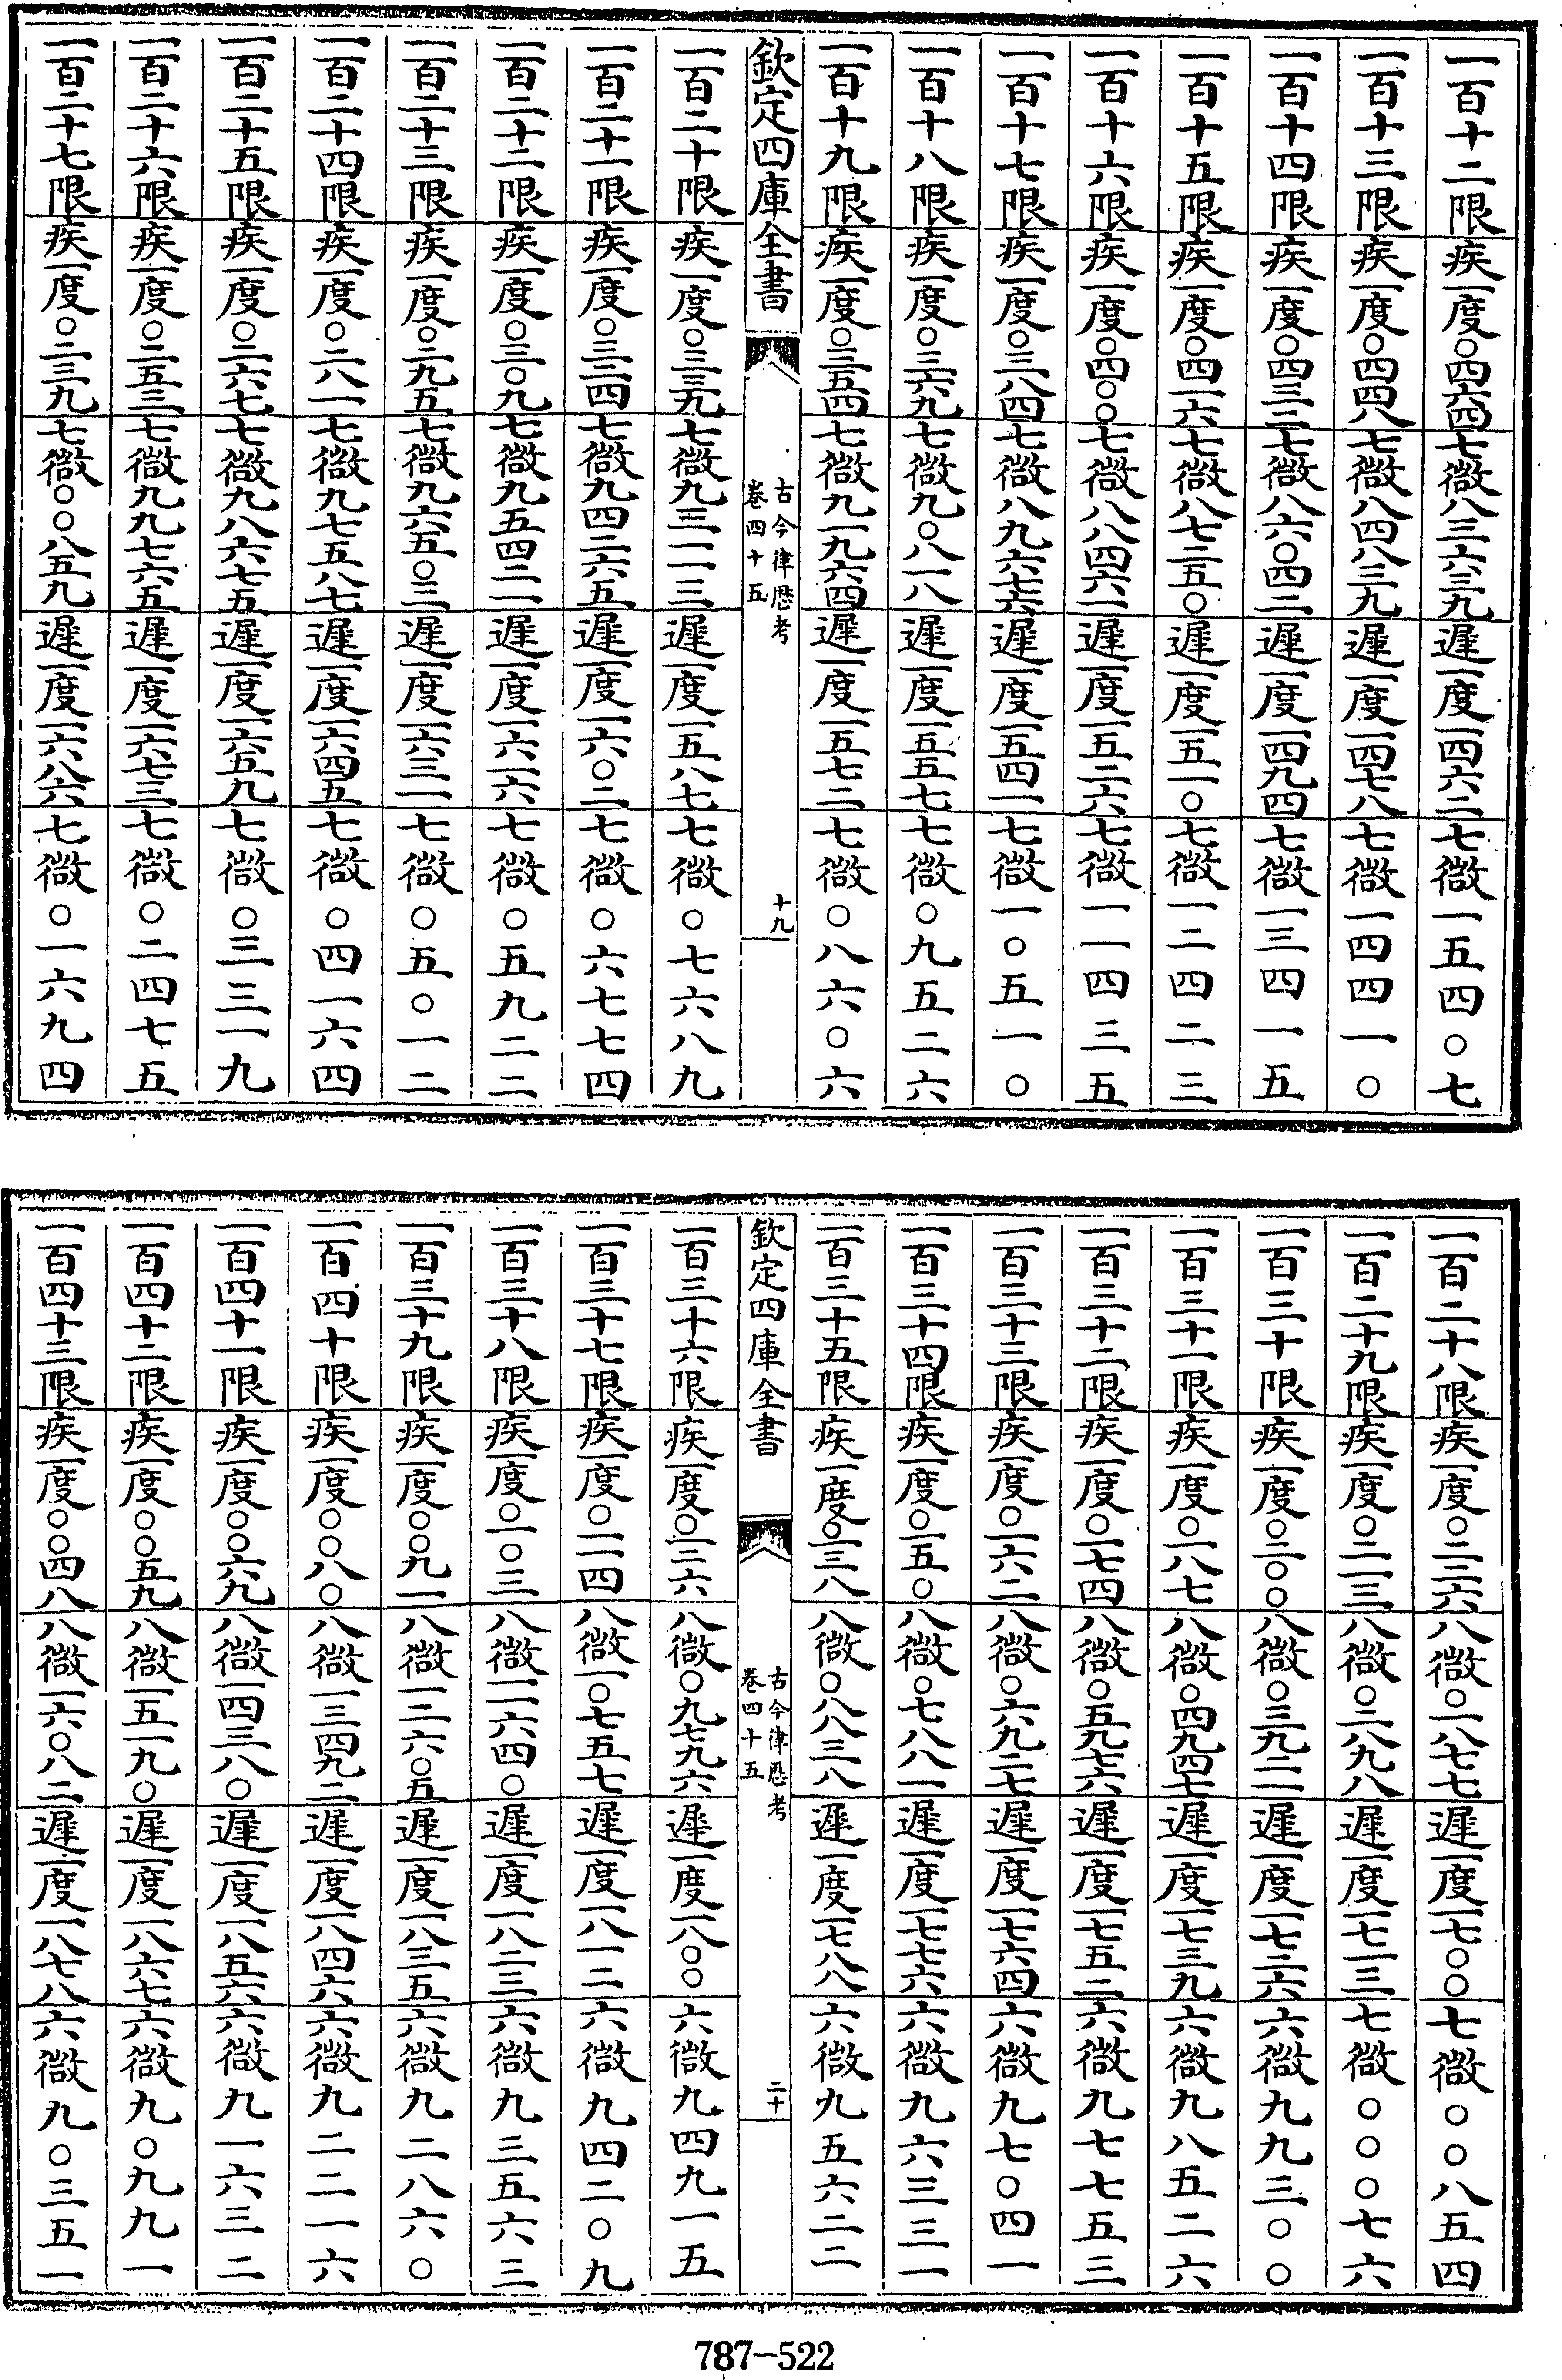 一百十二限疾一度〇四六四七微八三六三九遲一度一四六二七微一五四〇七
一百十三限疾一度〇四四八七微八四八三九遲一度一四七八七微一四四一〇
一百十四限疾一度〇四三二七微八六〇四二遲一度一四九四七微一三四一五
一百十五限疾一度〇四一六七微八七二五〇遲一度一五一〇七微一二四二三
一百十六限疾一度〇四〇〇七微八八四六一遲一度一五二六七微一一四三五
一百十七限疾一度〇三八四七微八九六七六遲一度一五四一七微一〇五一〇
一百十八限疾一度〇三六九七微九〇八一八遲一度一五五七七微〇九五二六
一百十九限疾一度〇三五四七微九一九六四遲一度一五七二七微〇八六〇六
欽定四庫全書
古今律歷考
卷四十五
十九
一百二十限疾一度〇三三九七微九三一一三遲一度一五八七七微〇七六八九
一百二十一限疾一度〇三二四七微九四二六五遲一度一六〇二七微〇六七七四
一百二十二限疾一度〇三〇九七微九五四二一遲一度一六一六七微〇五九二二
一百二十三限疾一度〇二九五七微九六五〇三遲一度一六三一七微〇五〇一二
一百二十四限疾一度〇二八一七微九七五八七遲一度一六四五七微〇四一六四
一百二十五限疾一度〇二六七七微九八六七五遲一度一六五九七微〇三三一九
一百二十六限疾一度〇二五三七微九九七六五遲一度一六七三七微〇二四七五
一百二十七限疾一度〇二三九七微〇〇八五九遲一度一六八六七微〇一六九四
一百二十八限疾一度〇二二六八微〇一八七七遲一度一七〇〇七微〇〇八五四
一百二十九限疾一度〇二一三八微〇二八九八遲一度一七一三七微〇〇〇七六
一百三十限疾一度〇二〇〇八微〇三九二一遲一度一七二六六微九九三〇〇
一百三十一限疾一度〇一八七八微〇四九四七遲一度一七三九六微九八五二六
一百三十二限疾一度〇一七四八微〇五九七六遲一度一七五二六微九七七五三
一百三十三限疾一度〇一六二八微〇六九二七遲一度一七六四六微九七〇四一
一百三十四限疾一度〇一五〇八微〇七八八一遲一度一七七六六微九六三三一
一百三十五限疾一度〇一三八八微〇八八三八遲一度一七八八六微九五六二二
欽定四庫全書
古今律歷考
卷四十五
二十
一百三十六限疾一度〇一二六八微〇九七九六遲一度一八〇〇六微九四九一五
一百三十七限疾一度〇一一四八微一〇七五七遲一度一八一二六微九四二〇九
一百三十八限疾一度〇一〇三八微一一六四〇遲一度一八二三六微九三五六三
一百三十九限疾一度〇〇九一八微一二六〇五遲一度一八三五六微九二八六〇
一百四十限疾一度〇〇八〇八微一三四九二遲一度一八四六六微九二二一六
一百四十一限疾一度〇〇六九八微一四三八〇遲一度一八五六六微九一六三二
一百四十二限疾一度〇〇五九八微一五一九〇遲一度一八六七六微九〇九九一
一百四十三限疾一度〇〇四八八微一六〇八二遲一度一八七八六微九〇三五一
787-522